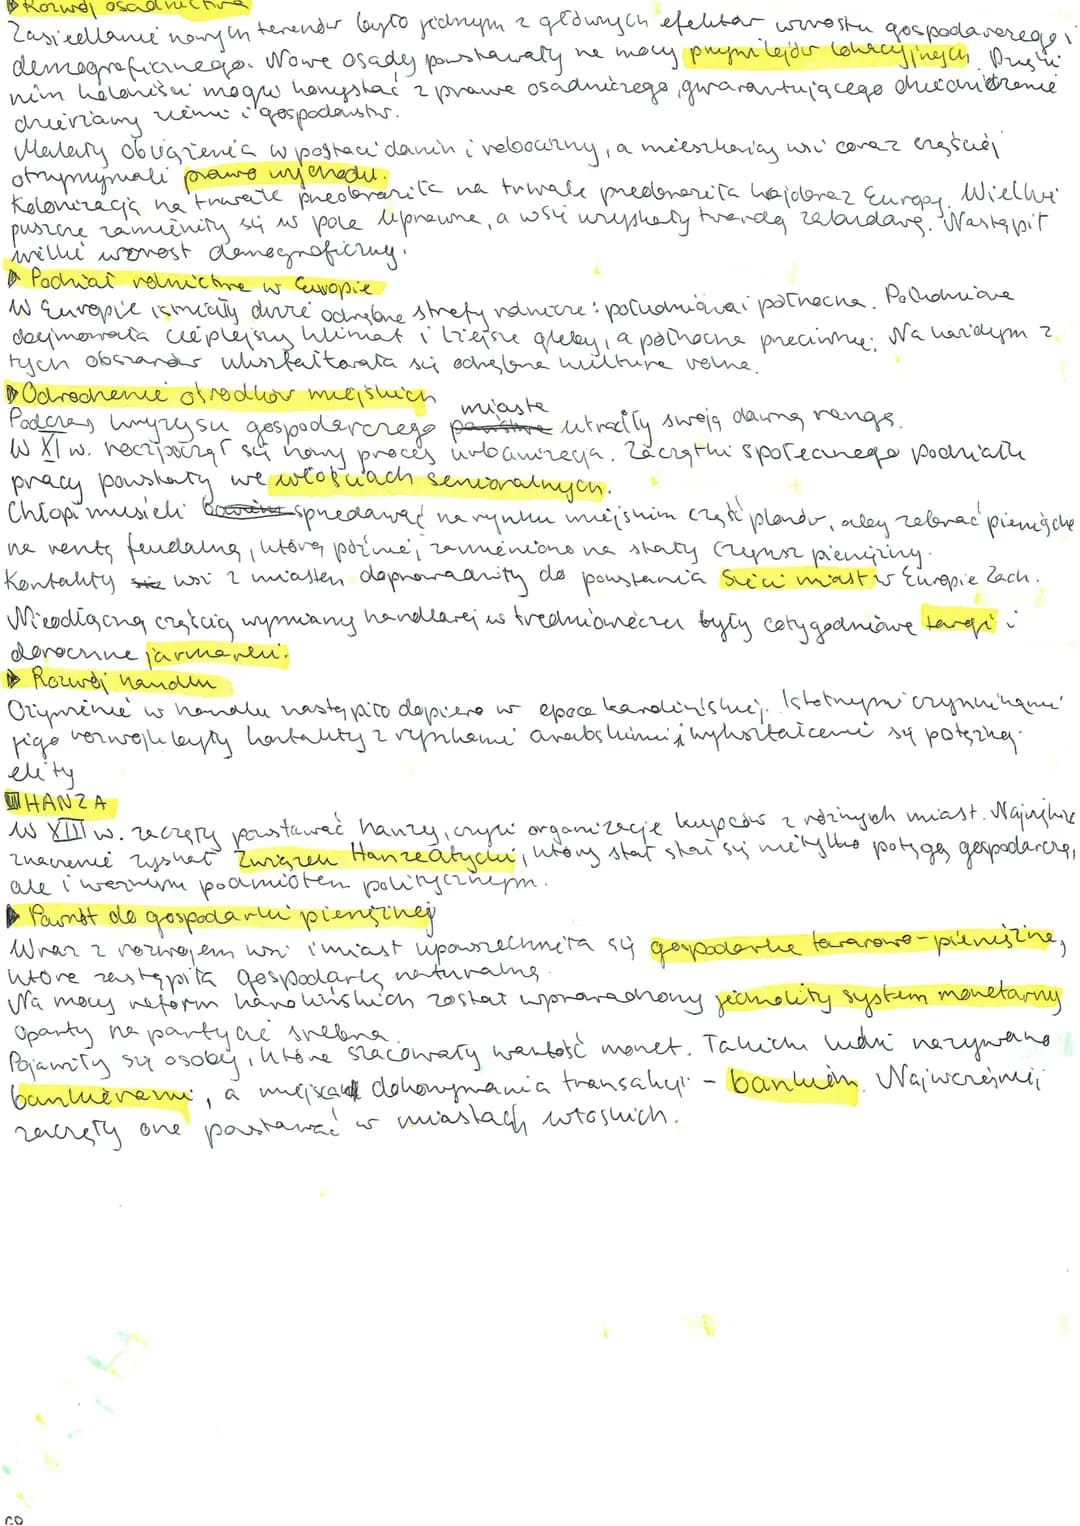 ▶ Rozwój osadnictwa
Zasiedlanie nowych terenów było jednym z głównych efektów wzrostu gospodarczego i
demograficznego. Nowe osady powstawały na mocy przywilejów lokacyjnych. Dzięki
nim koloniści mogli korzystać z prawa osadniczego, gwarantującego dziedziczenie
dzierżawy ziemi i gospodarstw.
Malały obciążenia w postaci danin i robocizny, a mieszkańcy wsi coraz częściej
otrzymywali prawo wychodu.
Kolonizacja na trwałe przeobraziła na trwałe przeobraziła krajobraz Europy. Wielkie
puszcze zamieniły się w pole uprawne, a wsie uzyskały twardą zabudowę. Nastąpił
wielki wzrost demograficzny.
▶ Podział rolnictwa w Europie
W Europie istniały dwie odrębne strefy rolnicze: południowa i północna. Południowa
obejmowała cieplejszy klimat i lżejsze gleby, a północna przeciwnie. Na każdym z
tych obszarów ukształtowała się odrębna kultura rolna.
▶ Odrodzenie ośrodków miejskich
Podczas kryzysu gospodarczego państwa miasta utraciły swoją dawną rangę.
W XI w. rozpoczął się nowy proces urbanizacja. Zaczątki społecznego podziału
pracy powstały we włościach senioralnych.
Chłopi musieli sprzedawać na rynku miejskim część plonów, aby zebrać pieniądze
na rentę feudalną, którą później zamieniono na stały czynsz pieniężny.
Kontakty się wsi z miastem doprowadziły do powstania sieci miast w Europie Zach.
Nieodłączną częścią wymiany handlowej w średniowieczu były cotygodniowe targi i
doroczne jarmarki.
▶ Rozwój handlu
Ożywienie w handlu nastąpiło dopiero w epoce karolińskiej. Istotnymi czynnikami
jego rozwoju były kontakty z rynkami arabskimi i wykształcenie się potężnej
elity
HANZA
W XIII w. zaczęły powstawać hanzy, czyli organizacje kupców z różnych miast. Największe
znaczenie zyskał Związek Hanzeatycki, który stał stał się nie tylko potęgą gospodarczą,
ale i ważnym podmiotem politycznym.
▶ Powrót do gospodarki pieniężnej
Wraz z rozwojem wsi i miast upowszechniła się gospodarka towarowo-pieniężna,
która zastąpiła gospodarkę naturalną.
Na mocy reform karolińskich został wprowadzony jednolity system monetarny
oparty na partycie srebra.
Pojawiły się osoby, które szacowały wartość monet. Takich ludzi nazywano
bankierami, a miejsca dokonywania transakcji - bankiem. Najwcześniej
zaczęły one powstawać w miastach włoskich.